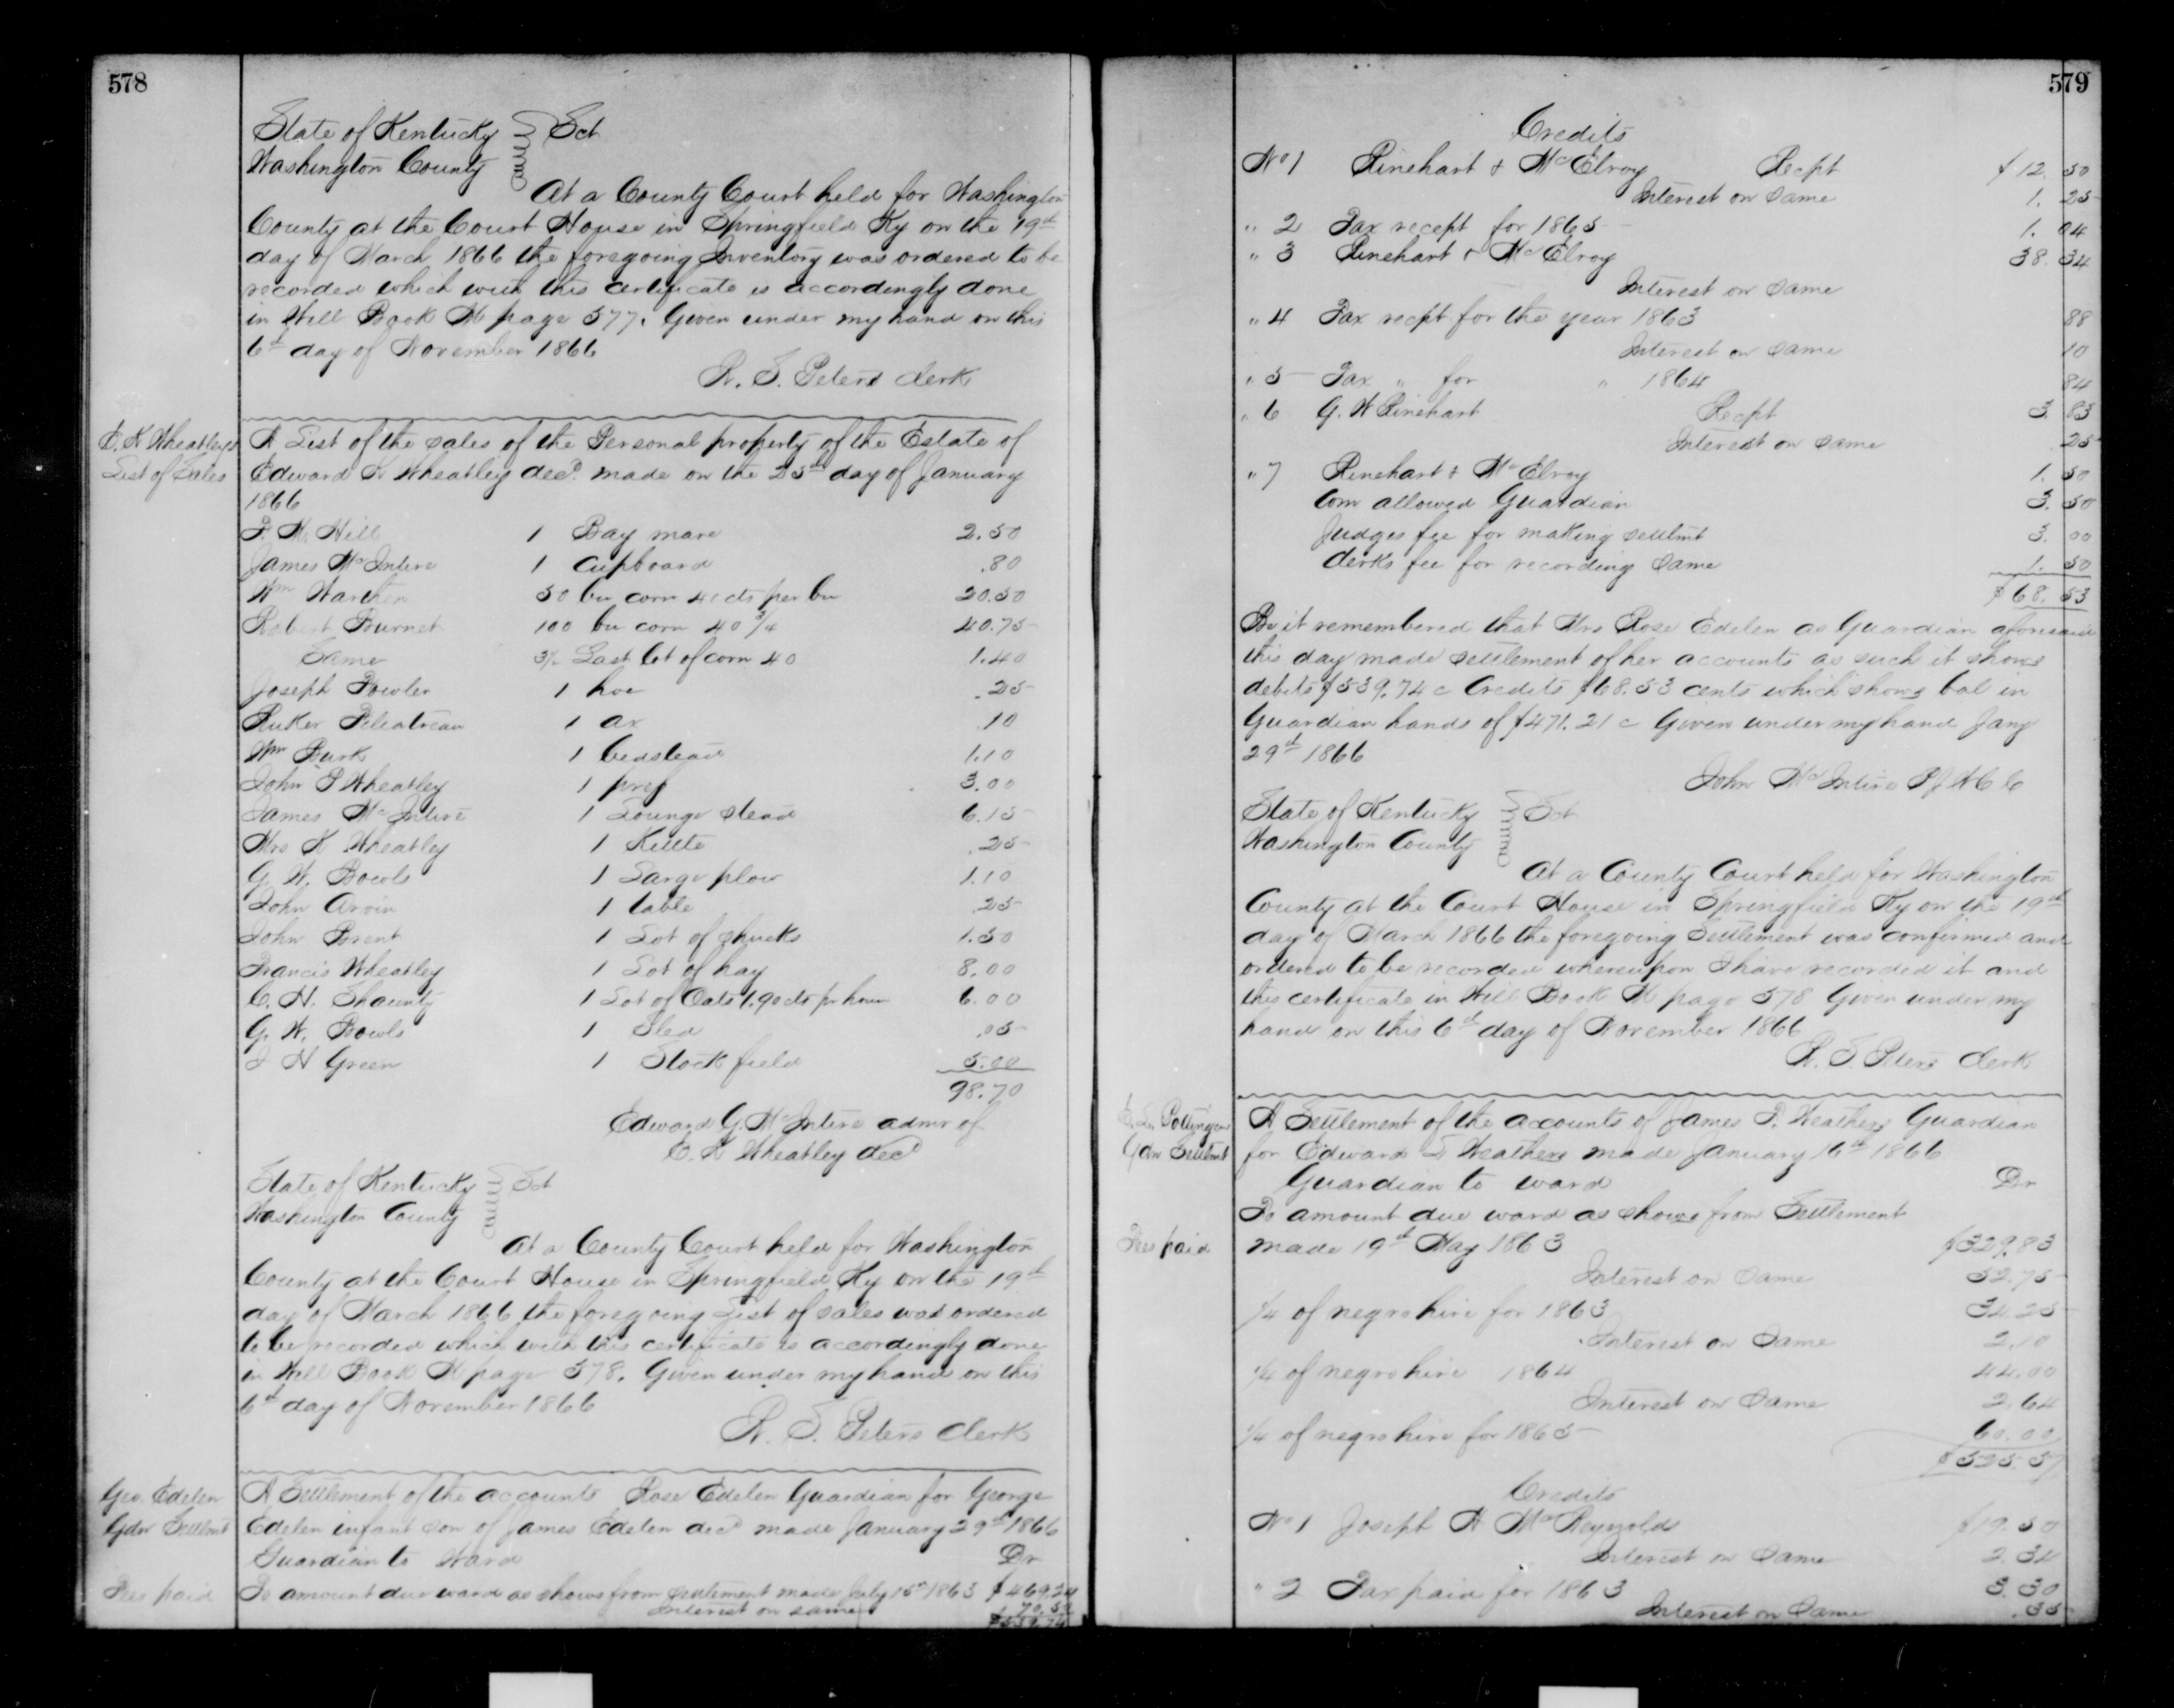 578
State of Kentucky } Sct
Washington County
At a County Court held for Washington
County at the Court House in Springfield Ky on the 19th
day of March 1866 the foregoing Inventory was ordered to be
recorded which with this certificate is accordingly done
in Will Book K page 577. Given under my hand on this
6th day of November 1866
W. F. Peters Clerk
E. K Wheatleys
List of Sales
A List of the sales of the Personal property of the Estate of
Edward K Wheatley decd made on the 25th day of January
1866
Hill 1 Bay mare 2.50
James McIntire 1 Cupboard .80
Wm 50 bu corn 41 cts per bu 20.50
Robert Burnet 100 bu corn 40 3/4 40.75
Same 3 1/2 Last lot of corn 40 1.40
Joseph Fowler 1 hoe .25
1 ax .10
Wm Burk 1 bedstead 1.10
John P Wheatley 1 3.00
James McIntire 1 Lounge stead 6.15
Mrs K Wheatley 1 Kittle .25
G. W. Bowls 1 Large plow 1.10
John Arvin 1 table .25
John Brent 1 Lot of shucks 1.50
Francis Wheatley 1 Lot of hay 8.00
C. H. 1 Lot of Oats 1.90 cts pr 6.00
G. W. Bowls 1 Sled .05
H Green 1 Stock field 5.00
98.70
Edward G. McIntire admr of
E. K Wheatley decd
State of Kentucky } Sct
Washington County
At a County Court held for Washington
County at the Court House in Springfield Ky on the 19th
day of March 1866 the foregoing List of sales was ordered
to be recorded which with this certificate is accordingly done
in Will Book K page 578. Given under my hand on this
6th day of November 1866
W. F. Peters Clerk
Geo. Edelen
Gdn Setlmt
A Settlement of the accounts Rose Edelen Guardian for George
Edelen infant son of James Edelen decd made January 29th 1866
Guardian to Ward Dr
Fees paid
To amount due ward as shows from settlement made July 15th 1863 $469.24
Interest on same 70.50
$539.74
579
Credits
No 1 Rinehart & McElroy Recpt $12. 50
Interest on Same 1. 25
" 2 Tax recept for 1865 1. 04
" 3 Rinehart & McElroy 38. 34
Interest on Same
" 4 Tax recpt for the year 1863 88
Interest on Same 10
" 5 Tax " for " 1864 84
" 6 G. W Rinehart Recpt 3. 83
Interest on Same 25
" 7 Rinehart & McElroy 1. 50
Com allowed Guardian 3. 50
Judges fee for making setlmt 3. 00
Clerks fee for recording Same 1. 50
$68. 53
Be it remembered that Mrs Rose Edelen as Guardian aforesaid
this day made settlement of her accounts as such it shows
debits $539.74 c Credits $68.53 cents which shows bal in
Guardian hands of $471.21 c Given under my hand Jany
29th 1866
John McIntire P J W C C
State of Kentucky } Sct
Washington County
At a County Court held for Washington
County at the Court House in Springfield Ky on the 19th
day of March 1866 the foregoing Settlement was confirmed and
ordered to be recorded whereupon I have recorded it and
this certificate in Will Book K page 578 Given under my
hand on this 6th day of November 1866
W. F. Peters Clerk
Gdn Setlmt
A Settlement of the accounts of James P. Weathers Guardian
for Edward Weathers made January 16th 1866
Guardian to ward Dr
To amount due ward as shows from Settlement
Fees paid
made 19th May 1863 $329.83
Interest on Same 52.75
1/4 of negro hire for 1863 34.25
Interest on Same 2.10
1/4 of negro hire 1864 44.00
Interest on Same 2.64
1/4 of negro hire for 1865 60.00
$525.57
Credits
No 1 Joseph A McReynolds $19.50
Interest on Same 2.34
" 2 Tax paid for 1863 3.30
Interest on Same .35